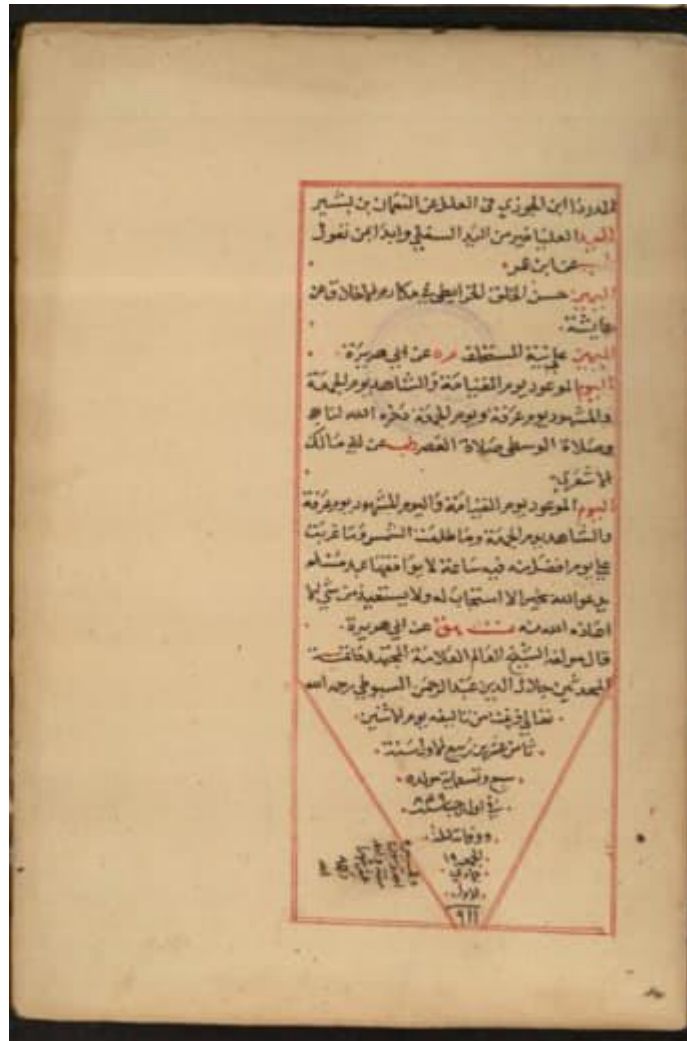 ابن الجوزي في العلل عن النعمان بن بشير
اليد العليا خير من اليد السفلى وابدا بمن تعول
عن ابن عمر
حسن الخلق الخرايطي في مكارم الاخلاق عن
عايشة
اليمين على نية المستحلف م ه عن ابي هريرة
اليوم الموعود يوم القيامة والشاهد يوم الجمعة
والمشهود يوم عرفة ويوم الجمعة ذخره الله لنا
وصلاة الوسطى صلاة العصر طب عن ابي مالك
الاشعري
اليوم الموعود يوم القيامة واليوم المشهود يوم عرفة
والشاهد يوم الجمعة وما طلعت الشمس وما غربت
على يوم افضل منه فيه ساعة لا يوافقها عبد مسلم
يدعو الله بخير الا استجاب له ولا يستعيذ من شي الا
اعاذه الله منه ت هق عن ابي هريرة
قال مولفه الشيخ العالم العلامة المجتهد
المحدثين جلال الدين عبد الرحمن السيوطي رحمه الله
تعالى فرغت من تاليفه يوم الاثنين
ثامن عشرين ربيع الاول سنة
سبع وتسعماية مولده
في اول رجب سنة ٨٤٩
ووفاته
١٩
جمادي
الاول
٩١١